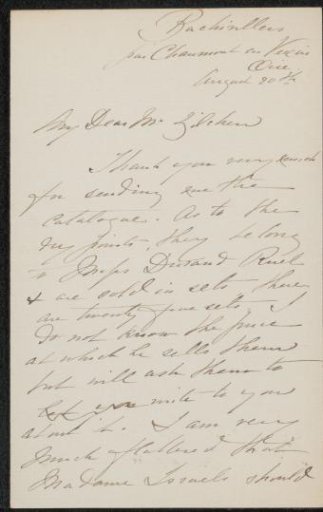 Bachivillers
par Chaumont en Vexin
Oise
August 20th
My Dear Mr Zilcken
Thank you very much
for sending me the
catalogue. As to the
dry points they belong
to Messrs Durand Ruel
& are sold in sets there
are twenty five sets. I
do not know the price
at which he sells them
but will ask them to
write to you
about it. I am very
much flattered that
Madame Israels should